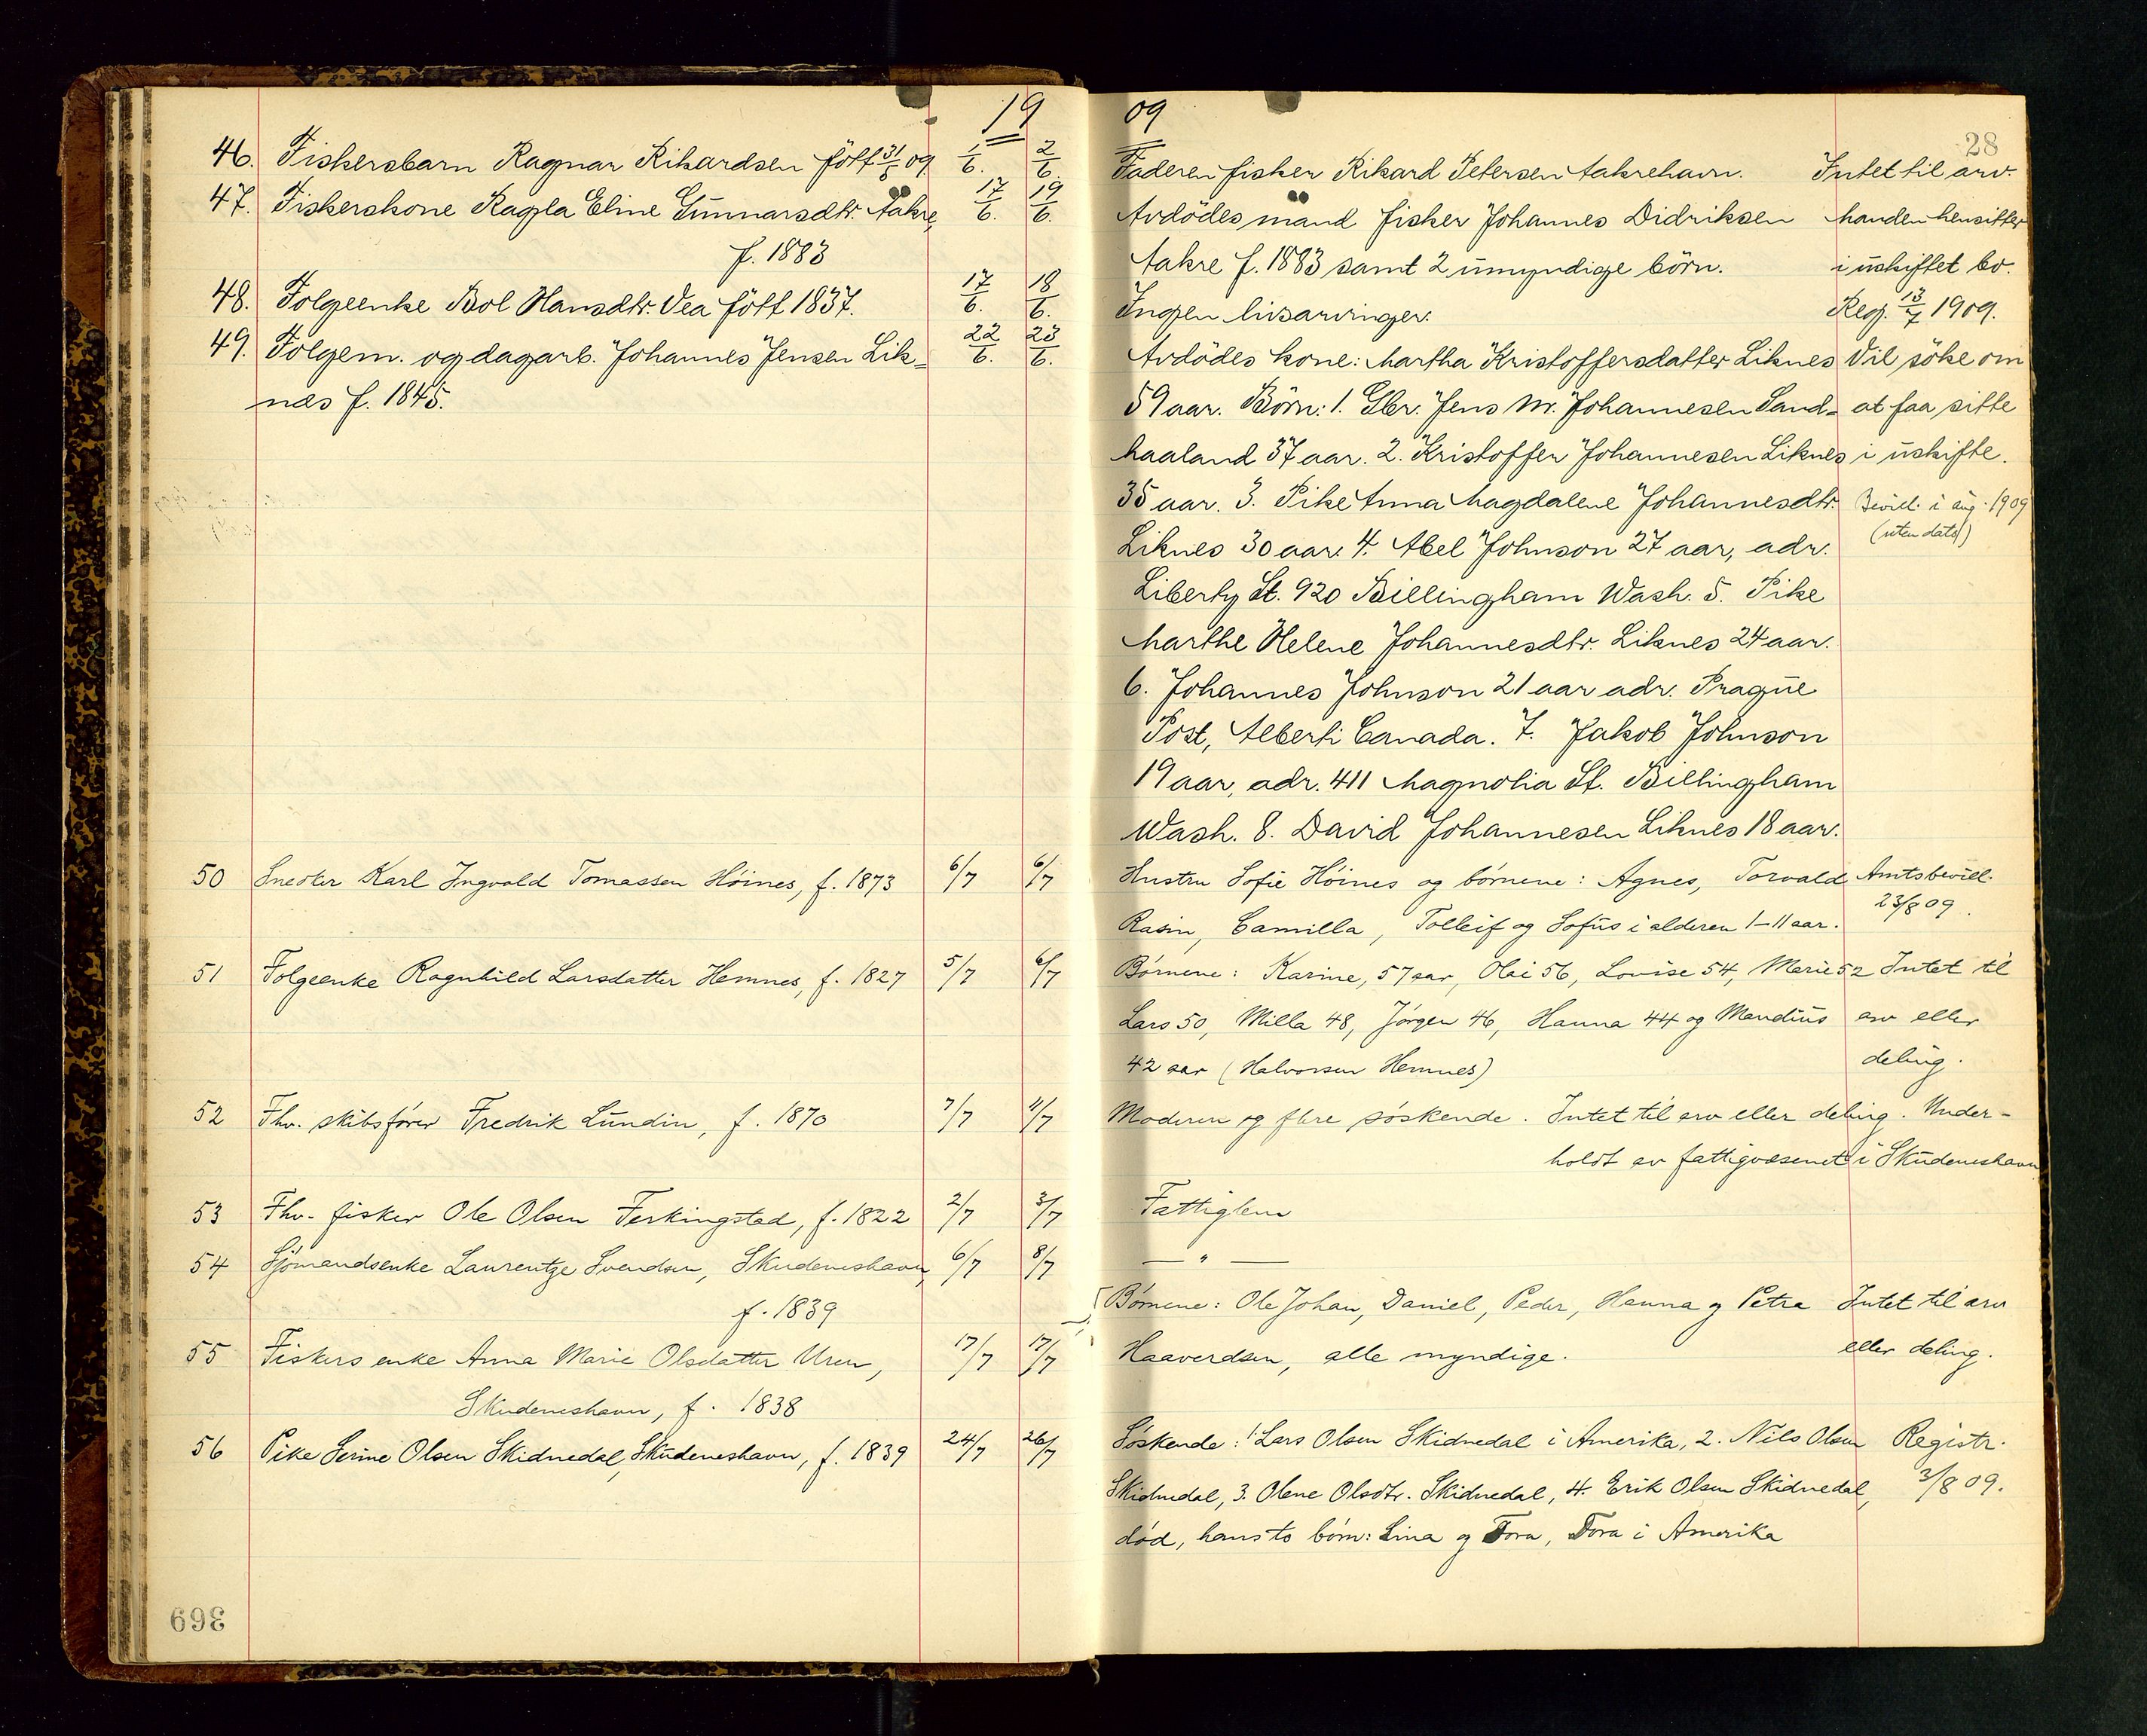 19
46. Fiskersbarn Ragnar Rikardsen föTT 31/5 09. 1/6. 2/6.
47. Fiskerskone Ragla Eline Gunnarsdtr. Aakre, 17/6. 19/6.
f. 1883
48. Folgeenke Bol Hansdtr. Vea föTT 1837. 17/6. 18/6.
49. Folgem. og dagarb. Johannes Jensen Lik= 22/6. 23/6.
nes f. 1845.
50 Snedker Karl Ingvald Tomassen Höines, f. 1873 6/7 6/7
51 Folgeenke Ragnhild Larsdatter Hemnes, f. 1827 5/7 6/7
52 Fhv. skibsfører Fredrik Lundin, f. 1870 7/7 11/7
53 Fhv. fisker Ole Olsen Ferkingstad, f. 1822 2/7 3/7
54 Sjömandsenke Laurentze Svendsen, Skudeneshavn, 6/7 8/7
f. 1839
55 Fiskers enke Anna Marie Olsdatter Uren, 17/7 17/7
Skudeneshavn, f. 1838
56 Pike Serine Olsen Skidnedal, Skudeneshavn, f. 1839 24/7 26/7
369
09
28
Faderen fisker Rikard Petersen Aakrehavn. Intet til arv.
Avdödes mand fisker Johannes Didriksen Manden hensitter
Aakre f. 1883 samt 2 umyndige börn. i uskiftet bo.
Ingen livsarvinger. Reg. 13/7 1909.
Avdödes kone: Martha Kristoffersdatter Liknes Vil söke om
59 aar. Börn: 1. Gbr. Jens M. Johannesen Sand= at faa sitte
haaland 37 aar. 2. Kristoffer Johannesen Liknes i uskifte.
35 aar. 3. Pike Anna Magdalene Johannesdtr. Bevill. i aug. 1909
Liknes 30 aar. 4. Abel Johnson 27 aar, adr. (uten dato)
Liberty St. 920 Billingham Wash. 5. Pike
Marthe Helene Johannesdtr. Liknes 24 aar.
6. Johannes Johnson 21 aar adr. Prague
Post, Alberti Canada. 7. Jakob Johnson
19 aar, adr. 411 Magnolia St. Billingham
Wash. 8. David Johannesen Liknes 18 aar.
Hustru Sofie Höines og börnene: Agnes, Torvald Amtsbevill.
23/8 09.
Rasin, Camilla, Tolleif og Sofus i alderen 1-11 aar.
Börnene: Karine, 57 aar, Olai 56, Lovise 54, Marie 52 Intet til
Lars 50, Milla 48, Jörgen 46, Hanna 44 og Mandius arv eller
42 aar (Halvorsen Hemnes) deling.
Moderen og flere söskende. Intet til arv eller deling. Under-
holdt av fattigvæsenet i Skudeneshavn
Fattiglem
— " —
Börnene: Ole Johan, Daniel, Peder, Hanna og Petra Intet til arv
Haaverdsen, alle myndige. eller deling.
Söskende: 1. Lars Olsen Skidnedal i Amerika, 2. Nils Olsen Registr.
Skidnedal, 3. Olene Olsdtr. Skidnedal, 4. Erik Olsen Skidnedal, 3/8 09.
död, hans to börn: Lina og Tora, Tora i Amerika